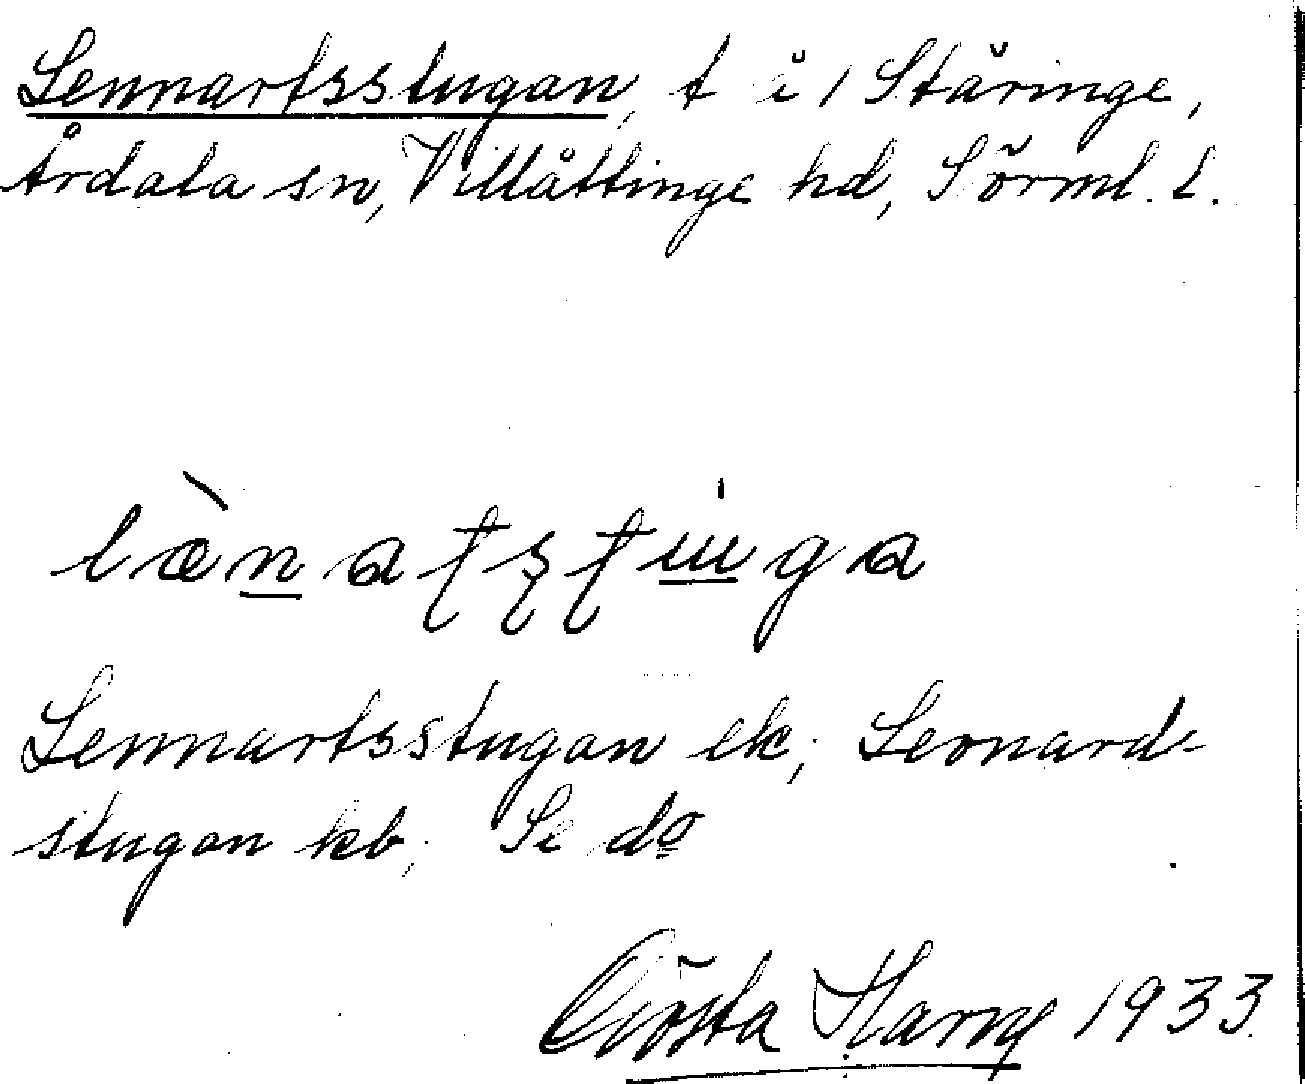 Lennartsstugan, t å 1 Ståringe,
Årdala sn, Villåttinge hd, Sörml. l.
lænatsstuga
Lennartsstugan ek; Leonard-
stugan kb; Se do
Gösta 1933